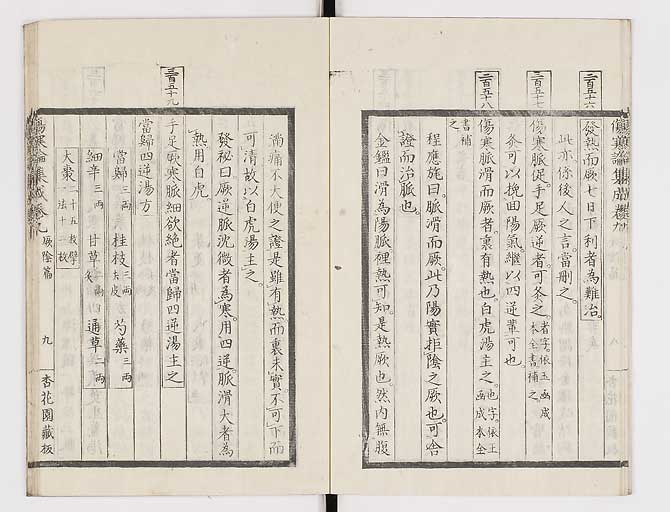 傷寒論集成卷九
二百五十六
發熱而厥七日下利者為難治。
此亦係後人之言。當刪之
二百五十七
傷寒脈促。手足厥逆者。可灸之。者字依玉函成本全書補之。
灸可以挽回陽氣。繼以四逆輩可也
二百五十八
傷寒脈滑而厥者。裏有熱也。白虎湯主之。也字。依玉函成本全
書補之
程應旄曰。脈滑而厥。此乃陽實拒陰之厥也。可舍
證而治脈也。
金鑑曰。滑為陽脈。裡熱可知。是熱厥也。然內無腹
滿痛不大便之證。是雖有熱而裏未實。不可下而
可清。故以白虎湯主之。
發秘曰。厥逆脈沈微者為寒。用四逆。脈滑大者為
熱用白虎
三百五十九
手足厥寒脈細欲絕者當歸四逆湯主之
當歸四逆湯方
當歸三兩 桂枝三兩去皮 芍藥三兩
細辛三兩 甘草二兩炙 通草二兩
大棗二十五枚擘一法十二枚
傷寒論集成卷九 厥陰篇 九 杏花園藏板